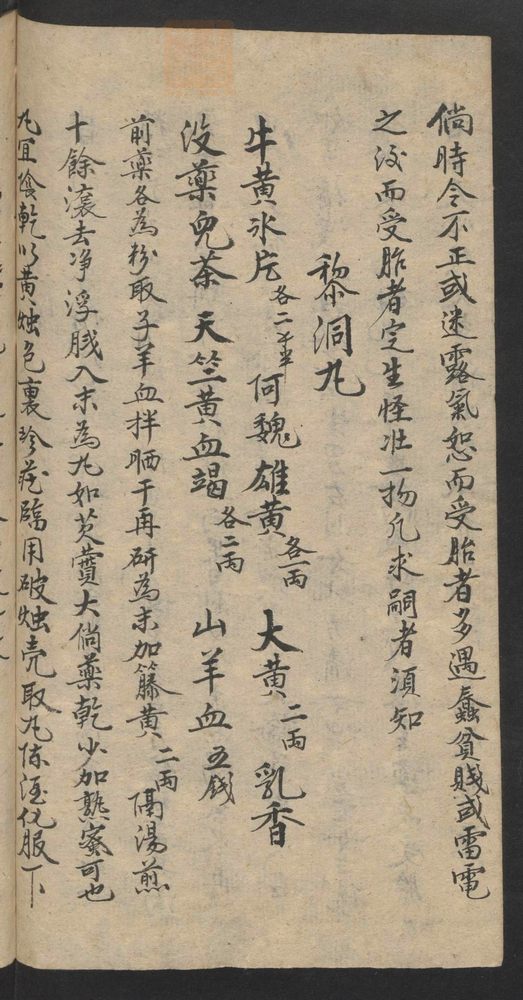 倘時令不正或迷露氣恕而受胎者多遇蠢貧賤或雷電
之後而受胎者定生怪壯一物凡求嗣者須知
黎洞丸
牛黃冰片各二千半何魏雄黃各一兩大黃二兩乳香
没藥兒茶天竺黃血竭各二兩山羊血五錢
前藥各為粉取子羊血拌晒干再研為末加籐黃二兩隔湯煎
十餘滾去净浮膱入末為丸如芡實大倘藥乾少加熟蜜可也
丸宜陰乾以黃蚀色裹珍茂臨用破蚀壳取丸陈酒化服下